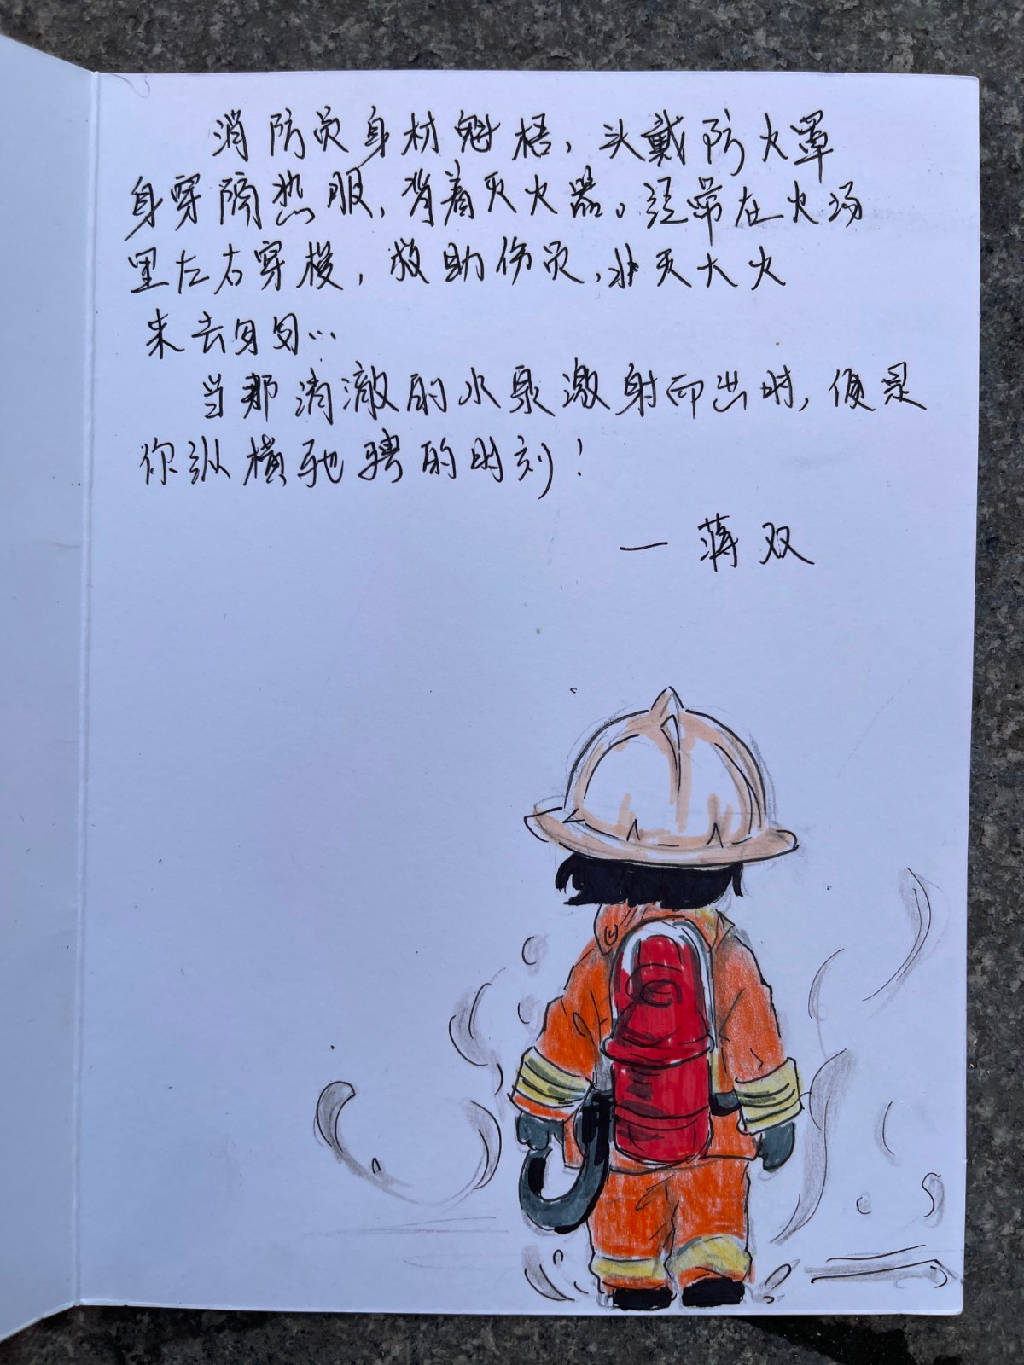 消防员身材魁梧，头戴防火罩
身穿隔热服，背着灭火器。经常在火场
里左右穿梭，救助伤员，扑灭大火
来去匆匆…
当那清澈的水泉激射而出时，便是
你纵横驰骋的时刻！
—蒋双